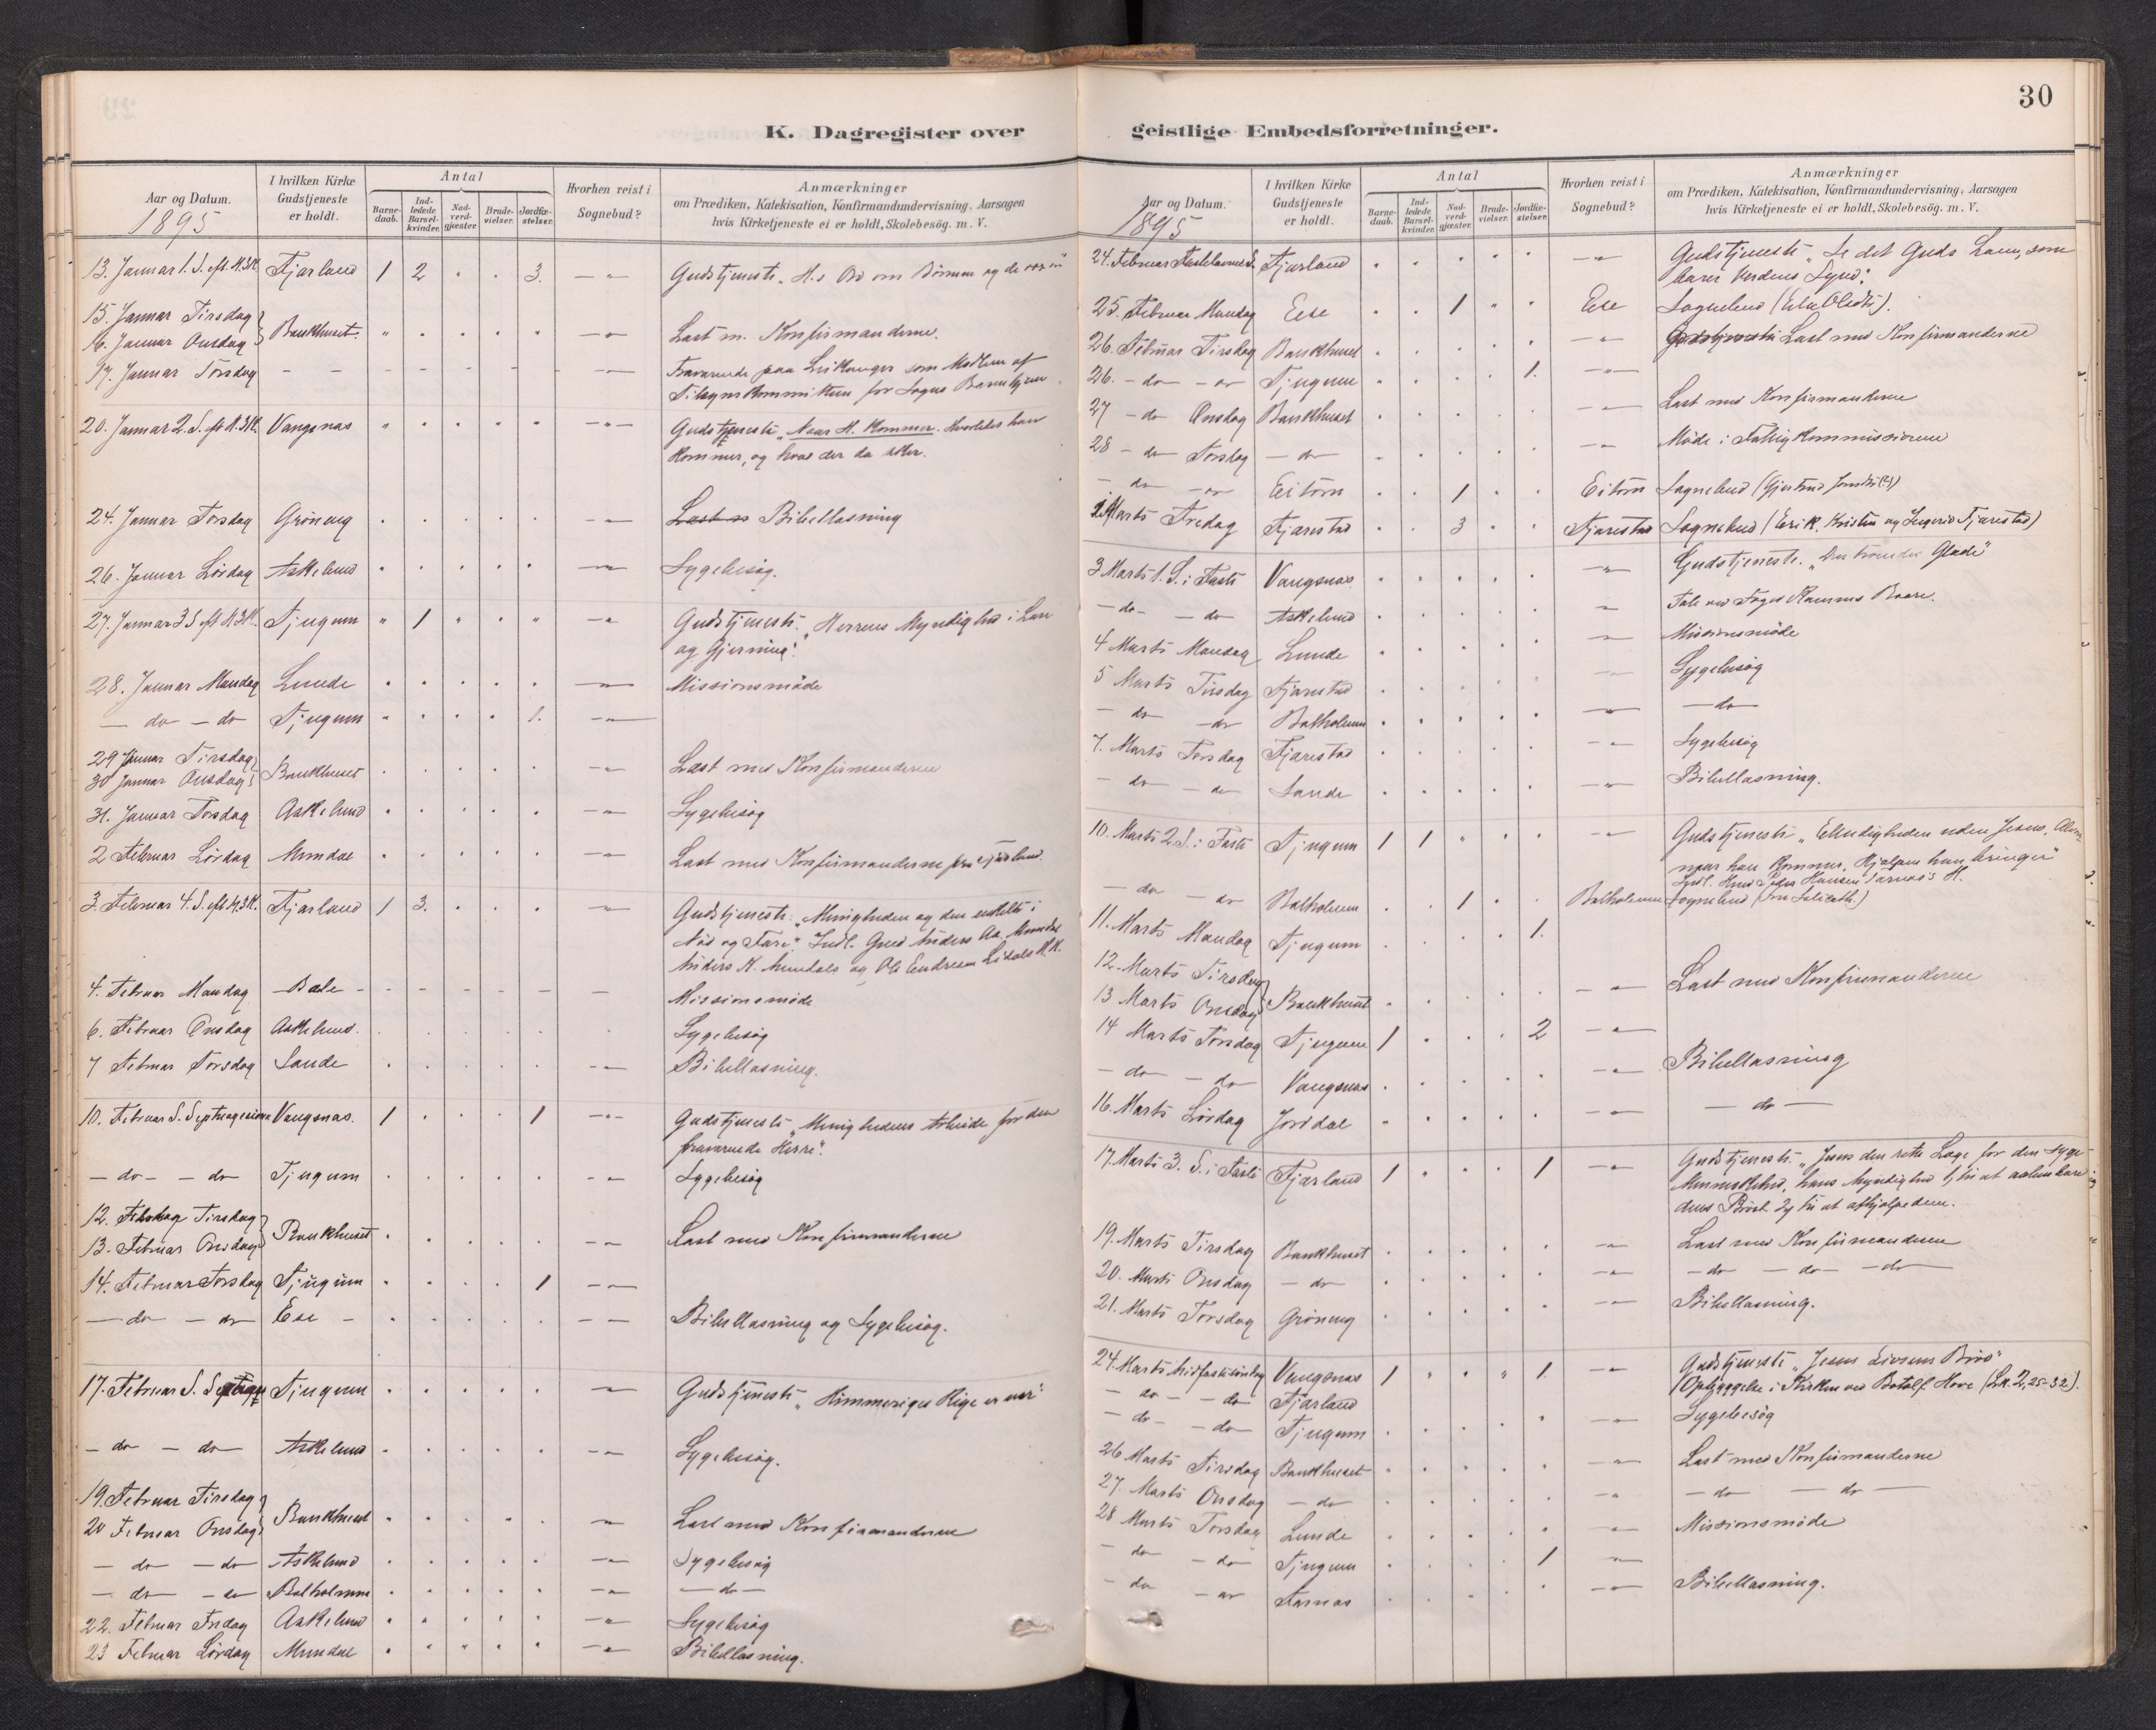 30
K. Dagregister over
Aar og Datum.
1895
I hvilken Kirke Gudstjeneste er holdt.
Antal
Barnedaab.
Indledede Barselkvinder.
Nadverdgjæster.
Brudevielser.
Jordfæstelser.
Hvorhen reist i Sognebud?
Anmærkninger
om Prædiken, Katekisation, Konfirmandundervisning, Aarsagen
hvis Kirketjeneste ei er holdt, Skolebesög. m. V.
13. Januar 1. S. eft. H.3K. Fjærland 1 2 " . 3. — " Gudstjeneste. H.s Ord om Börnene og de
15. Januar Tirsdag
16. Januar Onsdag } Bankhuset. " . . . . — " Læst m. Konfirmanderne.
17. Januar Torsdag – – – – – – – — " Fraværende paa Leikanger som Medlem af
Tilsynskommitteen for Sogns Barnehjem
20. Januar 2. S. eft H.3K. Vangsnæs " . . . . — " — Gudstjeneste "Naar H. kommer. Hvorledes han
kommer, og hvad der da sker.
24. Januar Torsdag Gröneng . . . . . — " Bibellæsning
26. Januar Lördag Askelund . . . . . — " Sygebesög.
27. Januar 3 S eft H.3K. Tjugum " 1 " . " — " Gudstjeneste. "Herrens Myndighed i Lære
og Gjerning".
28. Januar Mandag Lunde . . . . . — " Missionsmöde
— do — do Tjugum . . . . 1. — "
29 Januar Tirsdag
30 Januar Onsdag } Bankhuset . . . . . — " Læst med Konfirmanderne
31. Januar Torsdag Askelund . . . . . — " Sygebesög
2 Februar Lördag Mundal . . . . . — " Læst med Konfirmanderne fra Fjærland.
3. Februar 4. S. eft H.3K. Fjærland 1 3. . . . — " Gudstjeneste: "Menigheden og den enkelte i
Nöd og Fare". Indl. Gud Anders Aa. Mundal
Anders K. Mundals og Ole Endresen
4. Februar Mandag – Bale – – – – – – — Missionsmöde
6. Februar Onsdag Askelund. . . . . . . Sygebesög
7 Februar Torsdag Sande . . . . . — " Bibellæsning.
10. Februar S. Septuagesima Vangsnæs. 1 . . . 1 — " — Gudstjeneste "Menighedens Arbeide for den
fraværende Herre".
— do — — do Tjugum . . . . . — " Sygebesög
12. Tirsdag
13. Februar Onsdag } Bankhuset . . . . . — " Læst med Konfirmanderne
14. Februar Torsdag Tjugum . . . . 1 — "
— do — do Ese – . . . . . — — Bibellæsning og Sygebesög.
17. Februar S. Tjugum . . . . . — " Gudstjeneste "Himmeriges Rige er nær"
— do — do Askelund . . . . . — " Sygebesög.
19. Februar Tirsdag
20 Februar Onsdag } Bankhuset . . . . . — " Læst med Konfirmanderne
— do — do Askelund . . . . . — " Sygebesög
— do — do Balholmen . . . . . — " — do —
22. Februar Fredag Askelund . . . . . — " Sygebesög
23 Februar Lördag Mundal . . . . . — " Bibellæsning.
geistlige Embedsforretninger.
Aar og Datum.
1895
I hvilken Kirke Gudstjeneste er holdt.
Antal
Barnedaab.
Indledede Barselkvinder.
Nadverdgjæster.
Brudevielser.
Jordfæstelser.
Hvorhen reist i Sognebud?
Anmærkninger
om Prædiken, Katekisation, Konfirmandundervisning, Aarsagen
hvis Kirketjeneste ei er holdt, Skolebesög. m. V.
24. Februar Fastelavns S. Fjærland . . . . . — " Gudstjeneste "Se det Guds Lam, som
bærer Verdens Synd".
25. Februar Mandag Ese . . 1 " . Ese Sognebud
26. Februar Tirsdag Bankhuset . . . . . — " Læst med Konfirmanderne
26. – do – do Tjugum . . . . 1. — "
27 – do Onsdag Bankhuset . . . . . — " Læst med Konfirmanderne
28 – do Torsdag – do – . . . . . — " Möde i Fattigkommissionen
– do – do Eitorn . . 1 . . Eitorn Sognebud
1 Marts Fredag Fjærestad . . 3 . . Fjærestad Sognebud (Erik, Kristin og Ingerid Fjærestad)
3 Marts 1. S. i Faste Vangsnæs . . . . . — " Gudstjeneste. "Den troendes Glæde"
— do — do Askelund . . . . . " Tale ved Baare.
4 Marts Mandag Lunde . . . . . — " Missionsmöde
5 Marts Tirsdag Fjærestad . . . . . — " Sygebesög
— do — do Balholmen . . . . . — " — do —
7. Marts Torsdag Fjærestad . . . . . — " Sygebesög
– do – do Sande . . . . . — " Bibellæsning.
10. Marts 2. S. i Faste Tjugum 1 1 . . . — " Gudstjeneste "Elendigheden uden Jesus,
naar han kommer, Hjælpen han bringer"
— do — do Balholmen . . 1 . . Balholmen Sognebud
11. Marts Mandag Tjugum . . . . 1.
12. Marts Tirsdag
13 Marts Onsdag } Bankhuset . . . . . — " Læst med Konfirmanderne
14 Marts Torsdag Tjugum 1 . . . 2 — "
— do — do Vangsnæs . . . . . — " Bibellæsning
16. Marts Lördag Jordal . . . . . — " — do —
17. Marts 3. S. i Faste Fjærland 1 . . . 1 — " Gudstjeneste. "Jesus den rette Læge for den syge
Menneskehed, hans Myndighed 1) til at aabenbare
dens Bröst 2) til at afhjælpe dem.
19. Marts Tirsdag Bankhuset . . . . . — " Læst med Konfirmanderne
20. Marts Onsdag — do . . . . . — " — do — do — do
21. Marts Torsdag Gröneng . . . . . — " Bibellæsning.
24. Marts Midfastesöndag Vangsnæs 1 . . " 1. — " Gudstjeneste "Jesus Livsens Bröd"
— do — — do Fjærland (Opbyggelse i Kirken ved Botolf Hove (Luk. 2, 25-32).
— do — — do Tjugum . . . . . — " Sygebesög
26 Marts Tirsdag Bankhuset . . . . . — " Læst med Konfirmanderne
27. Marts Onsdag — do . . . . . " — do — do —
28 Marts Torsdag Lunde . . . . . — " Missionsmöde
– do – do Tjugum . . . . 1 — "
– do – do Farnæs . . . . . — " Bibellæsning.